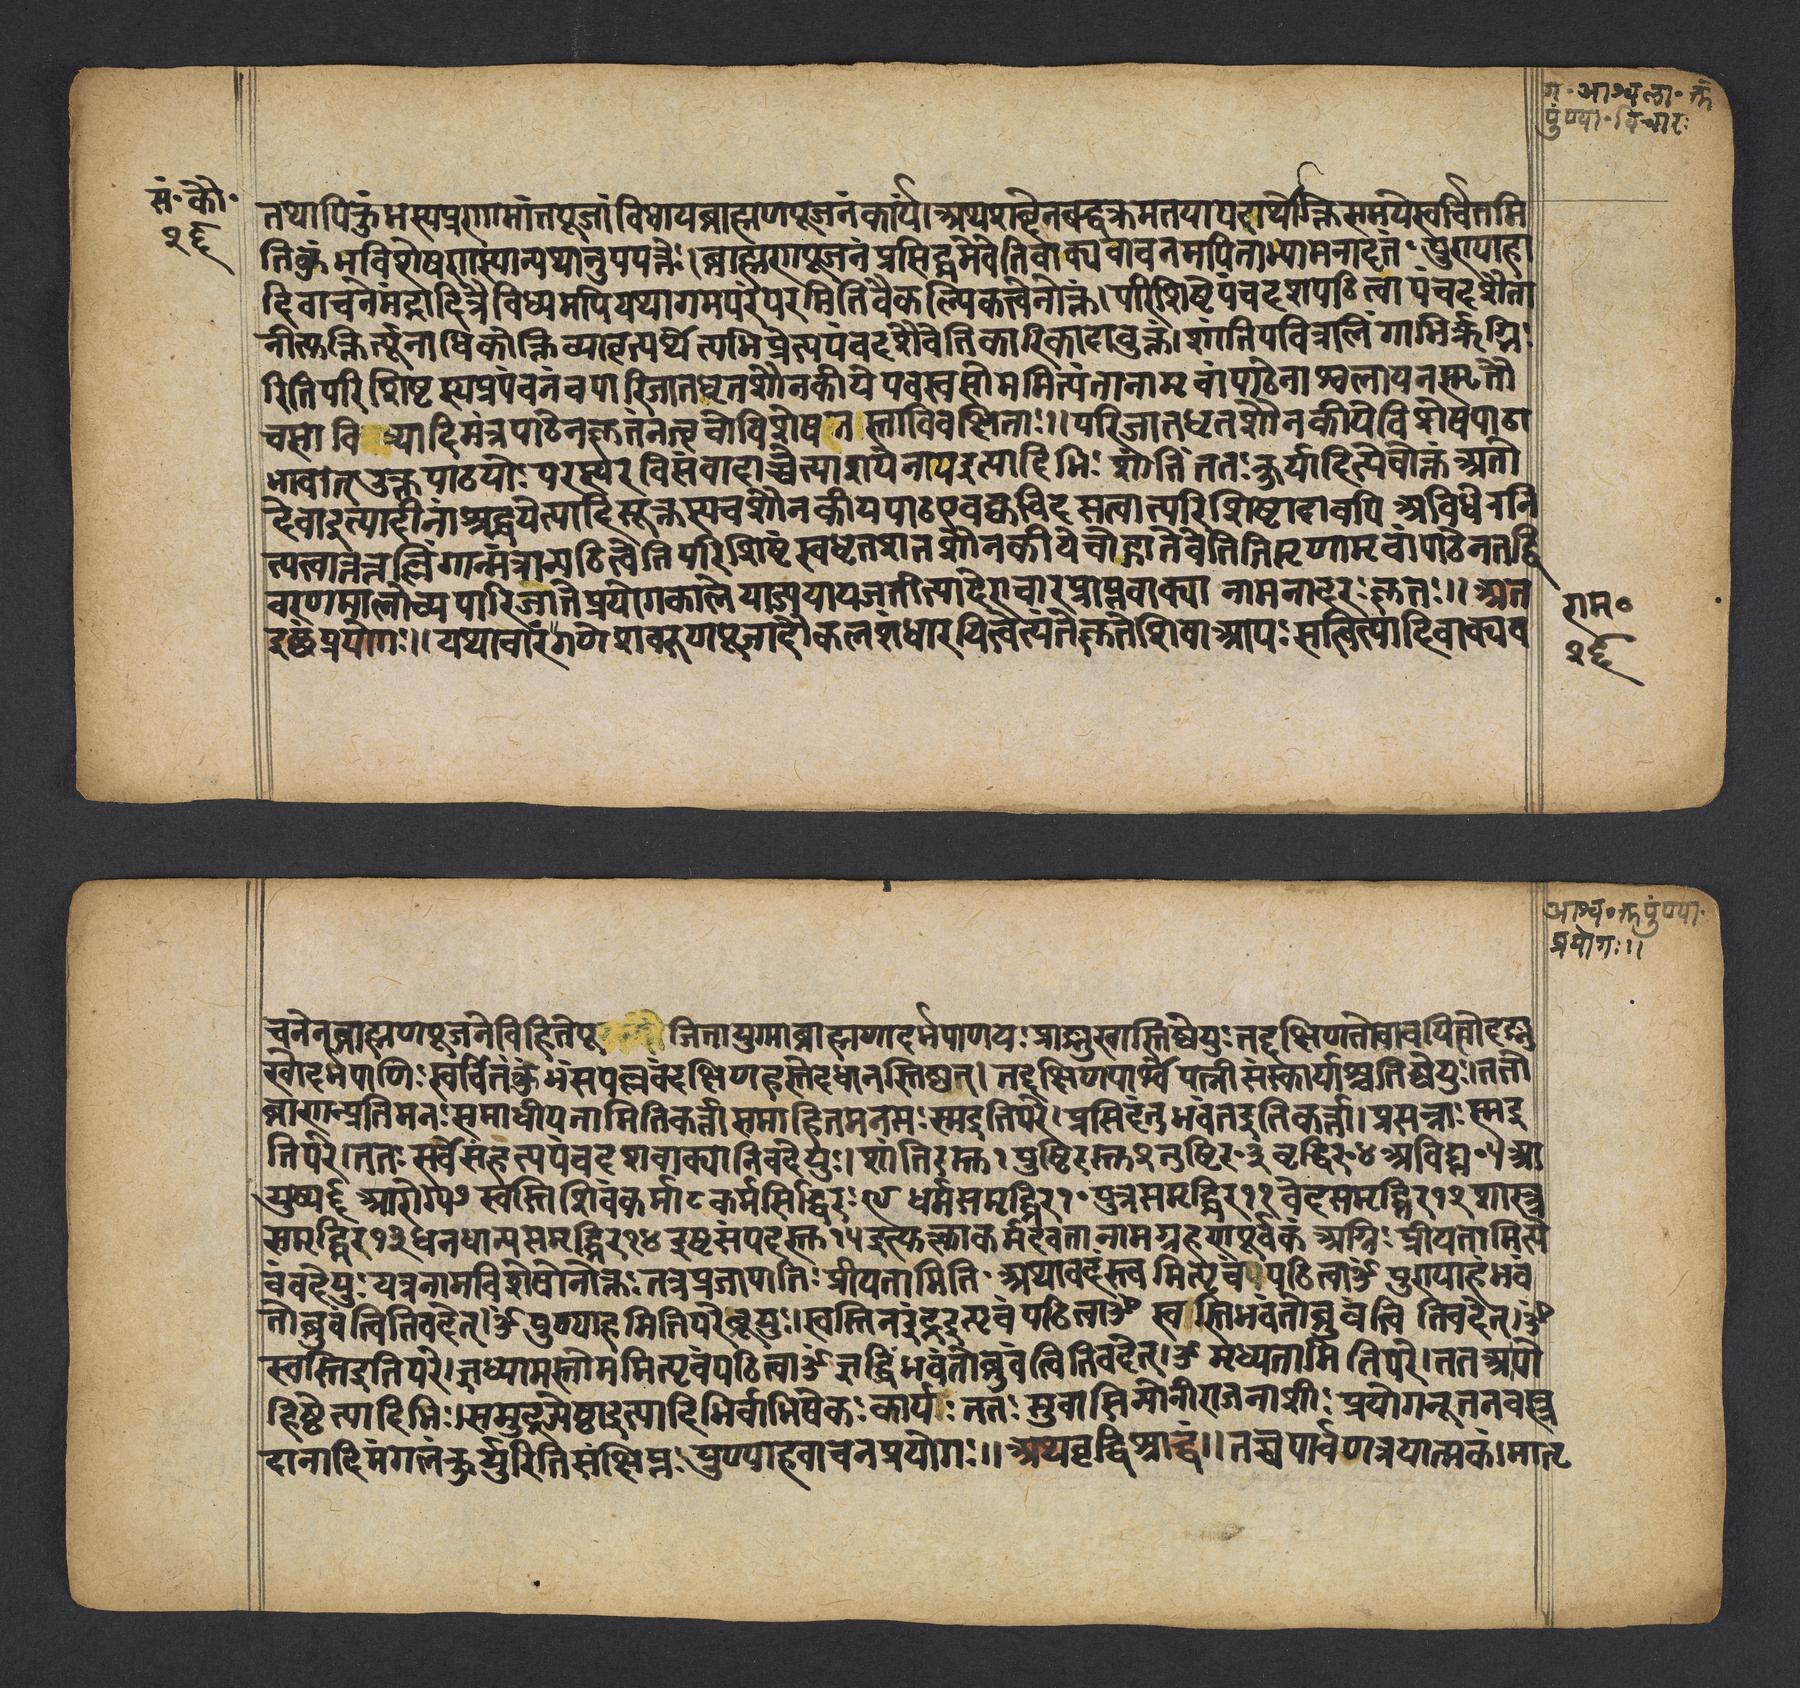 ग॰आश्वला॰क्त
पुंण्या॰विचारः
सं॰कौ॰
२६
तथापिकुंभस्यप्रणामांतपूजांविधायब्राह्मणपूजनंकार्यं।अथशब्देनबह्वृक्रमतयापदार्थोक्तिसमयेस्वर्चितमि
तिकुंभविशेषणस्यान्यथानुपपन्नैः।ब्राह्मणपूजनंप्रसिद्धमेवेतिवाक्यवाचनमपिनाभ्यामनादृतं॰पुण्याहा
दिवाचनेमंद्रादित्रैविध्यमपियथागमपरंपरमितिवैकल्पिकत्वेनोक्तं।परिशिष्टेपंचदशपठित्वापंचदशैता
नीत्यक्तिर्न्यूनाधिकोक्तिव्यावृत्यर्थेत्यभिप्रेत्यपंचदशैवेतिकारिकादावुक्तं।शांतिपवित्रलिंगाभिर्ऋग्भि
रितिपरिशिष्टस्यप्रपंचनंचपारिजातधृतशौनकीयेपवस्वसोममित्यंतानामृचांपाठेनाश्वलायनस्मृतौ
चसोवि ष्ण्यादिमंत्रपाठेनकृतंनत्वृचोविशेष तस्ताविवक्षिताः॥परिजातधृतशौनकीयेविशेषपाठा
भावात्उक्तपाठयोःपरस्परविसंवादाच्चेत्याशयेनापइत्यादिभिः शांतिं ततःकुर्यादित्येवोक्तं अतो
देवाइत्यादीनांअह्वयेत्यादिसूक्तस्यचशौनकीयपाठएवक्वचिदसत्वात्परिशिष्टादावपि अविधेरनि
त्यत्वात्तल्लिंगान्मंत्रान्पठित्वेतिपरिशिष्टंस्वधृतशांतशौनकीयेचोदातेवेतितिसृणामृचांपाठेनतद्वि
वरणमालोच्यपारिजातेप्रयोगकालेयाज्ञयायजंतीत्यादेराचारप्राप्तवाक्या नामनादरःकृतः॥ अत
इत्थंप्रयोगः॥यथाचारंगणेशवरुणपूजादौकलशंधारयित्वेत्यंतेकृतेशिवाआपःसंत्वित्यादिवाक्यव
राम॰
२६
आश्व॰क्तपुंण्या॰
प्रयोगः॥
चनेनब्राह्मणपूजनेविहितेपू जितायुग्माब्राह्मणादर्भपाणयःप्राङ्मुखास्तिष्ठेयुःतद्दक्षिणतोवाचयितोदङ्मु
खोदर्भपाणिःस्वर्चितंकुंभंसपल्लवंदक्षिणहस्तेदधानस्तिष्ठेत्। तद्दक्षिणपार्श्वेपत्नीसंस्कार्याश्चतिष्ठेयुः।ततो
ब्राह्मणान्प्रतिमनःसमाधीयतामितिकर्त्ता।समाहितमनसःस्मइतिपरे।प्रसीदंतुभवंतइतिकर्त्ता।प्रसन्नाःस्मइ
तिपरे।ततःसर्वेसंहत्यपंचदशवाक्यानिवदेयुः।शांतिरस्त१पुष्टिरस्त२तुष्टिर॰३वृद्धिर॰४अविघ्न॰५आ
युष्य६आरोग्य७स्वस्तिशिवंकर्मा८कर्मसिद्धिरः९धर्मसमृद्धिर१॰पुत्रसमृद्धिर११वेदसमृद्धिर१२शास्त्र
समृद्धिर१३धनधान्यसमृद्धिर१४इष्टसंपदस्त१५इत्युक्त्वाकर्मदेवतानामग्रहणपूर्वकं अग्निःप्रीयतामित्ये
वंवदेयुःयत्रनामविशेषोनोक्तःतत्रप्रजापतिःप्रीयतामिति॰अथावदंस्त्वमित्यृचंपठित्वाॐपुण्याहंभवं
तोब्रुवंत्वितिवदेत्।ॐपुण्याहमितिपरेब्रूयुः।स्वस्तिनइंद्रइत्यृचंपठित्वाॐ स्वस्तिभवंतोब्रुवंत्वितिवदेत्।ॐ
स्वस्तिइतिपरे।ऋध्यामस्तोममित्यृचंपठित्वाॐऋद्धिंभवंतोब्रुवंत्वितिवदेत्।ॐऋध्यतामितिपरे।ततआपो
हिष्टेत्यादिभिः।समुद्रज्येष्ठाइत्यादिभिर्वाभिषेकःकार्यः ततः सुवासिन्योनीराजनाशीः प्रयोगनूतनवस्त्र
दानादिमंगलंकुर्युरितिसंक्षिप्तः पुण्याहवाचनप्रयोगः॥अथवृद्धिश्राद्धं॥तच्चपार्वणत्रयात्मकं।मातृ